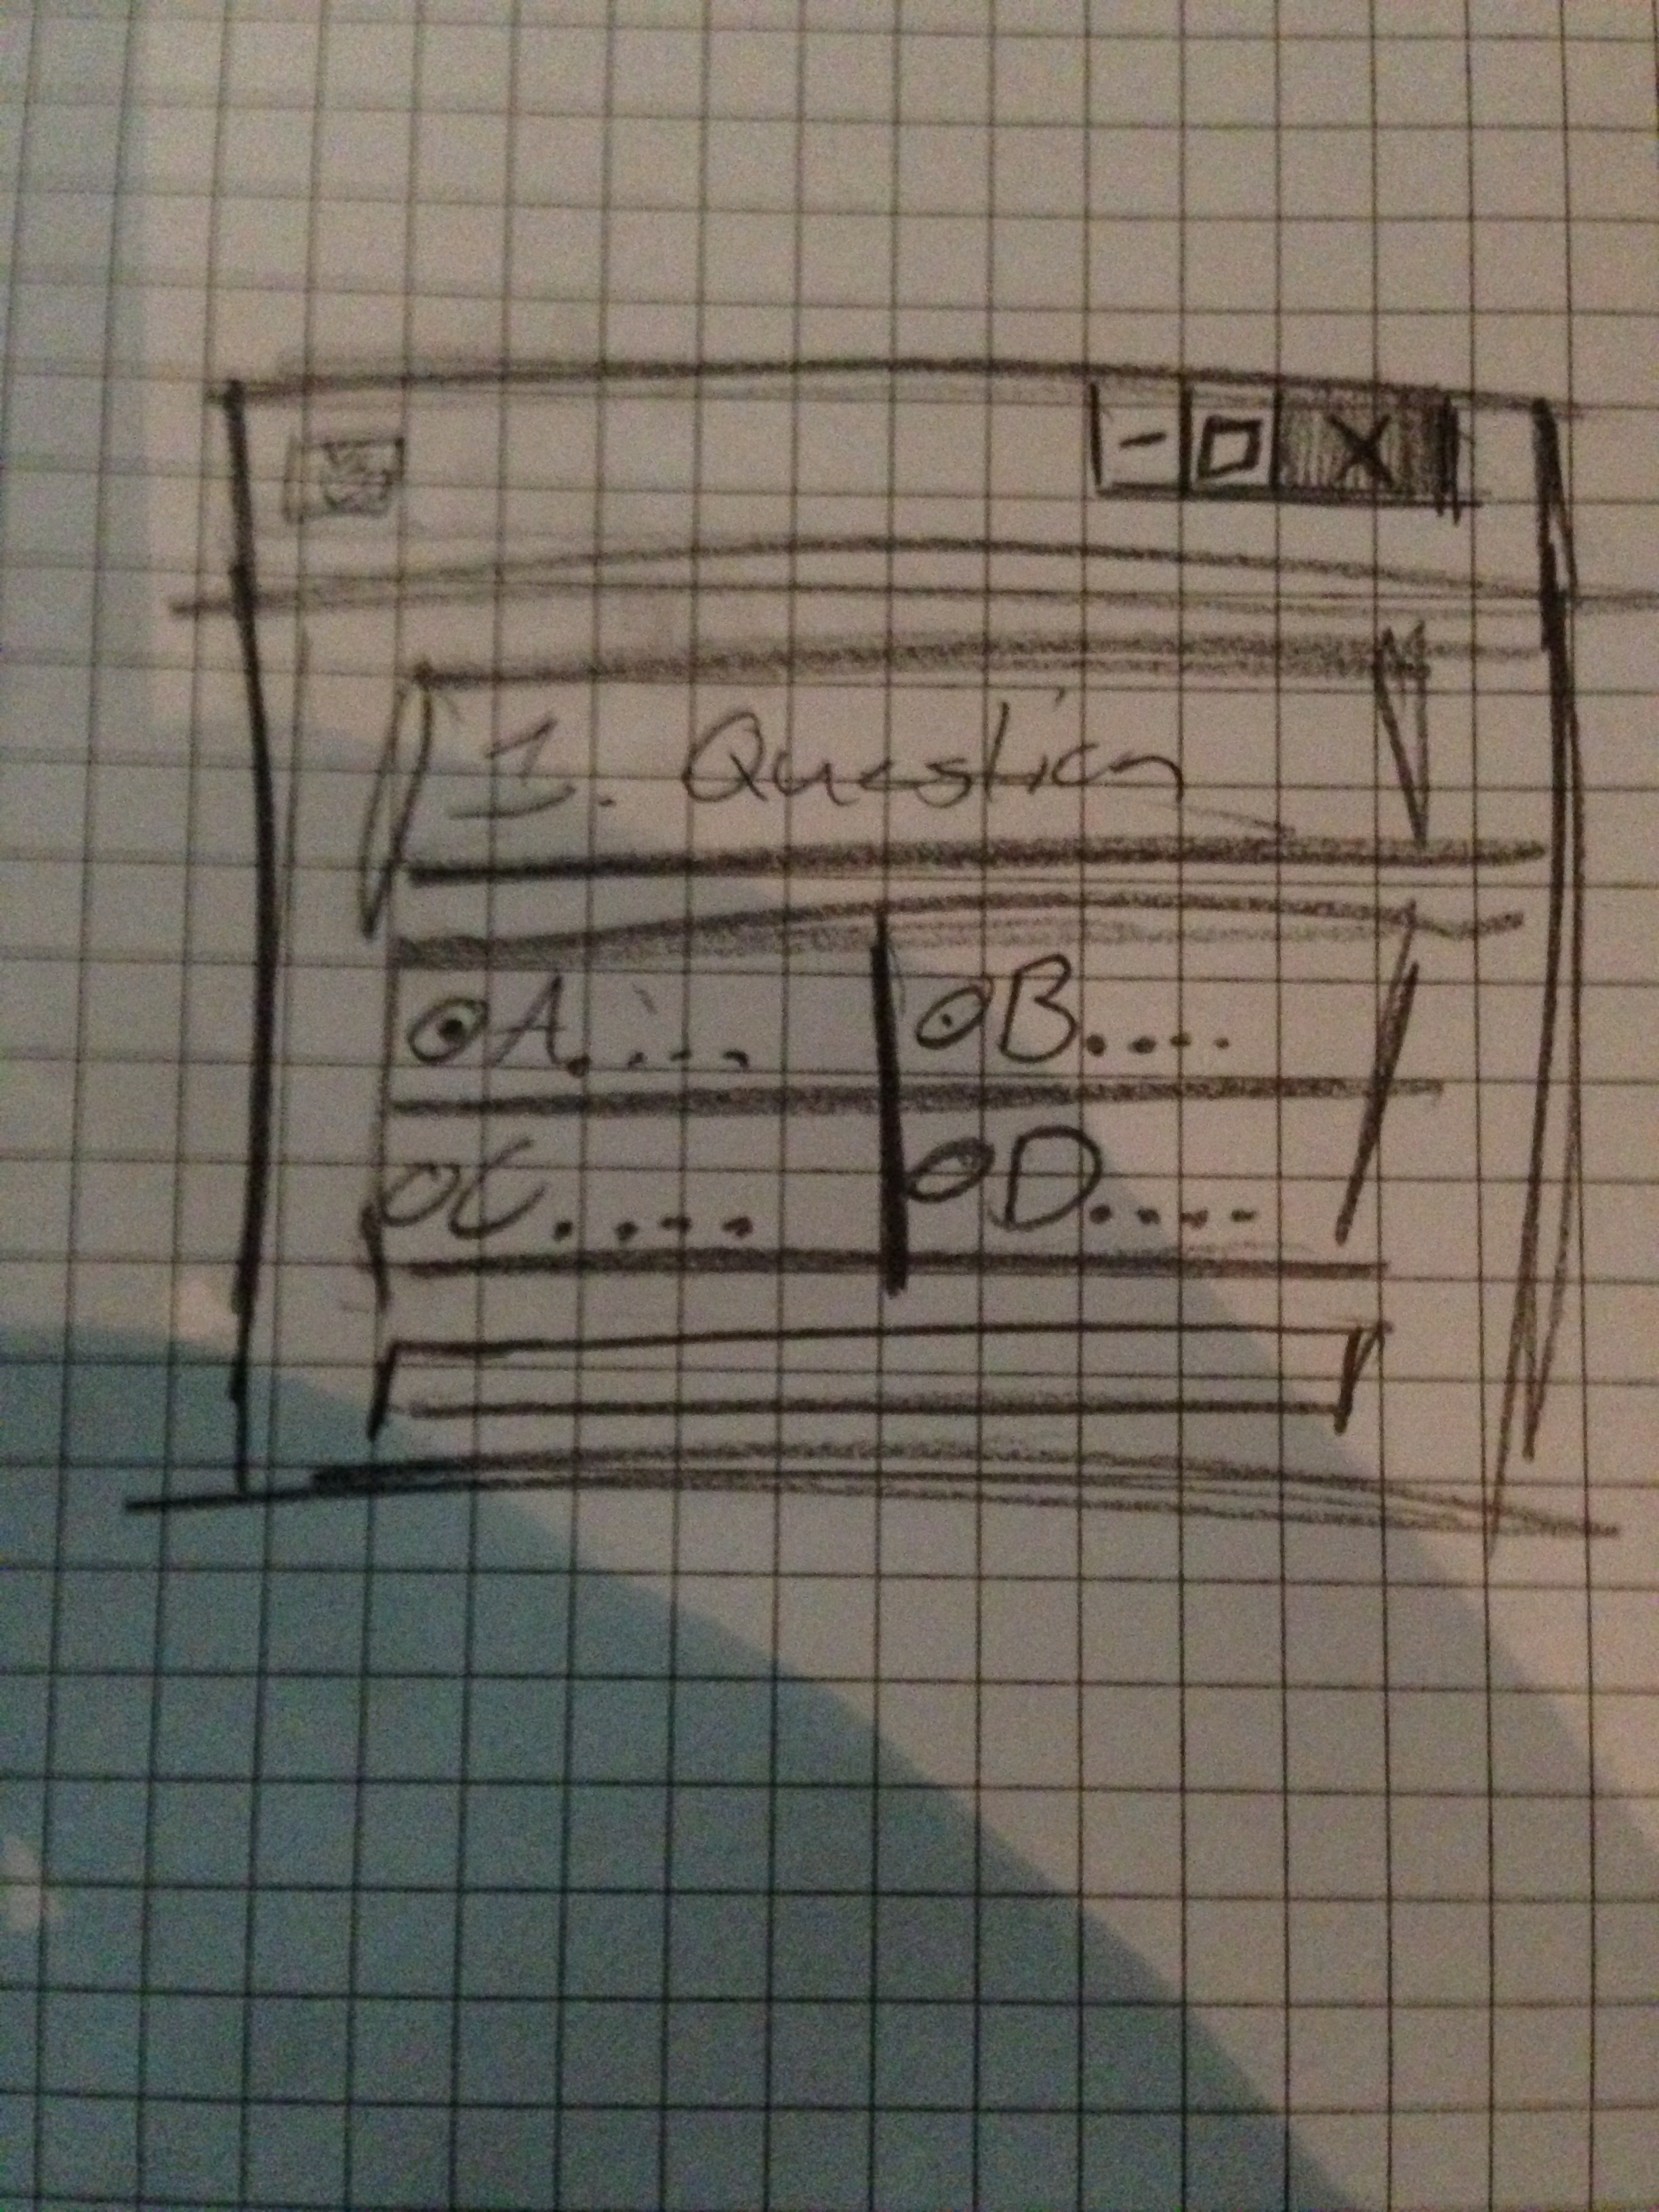 X
1. Question
A.....
B....
C.....
D.....